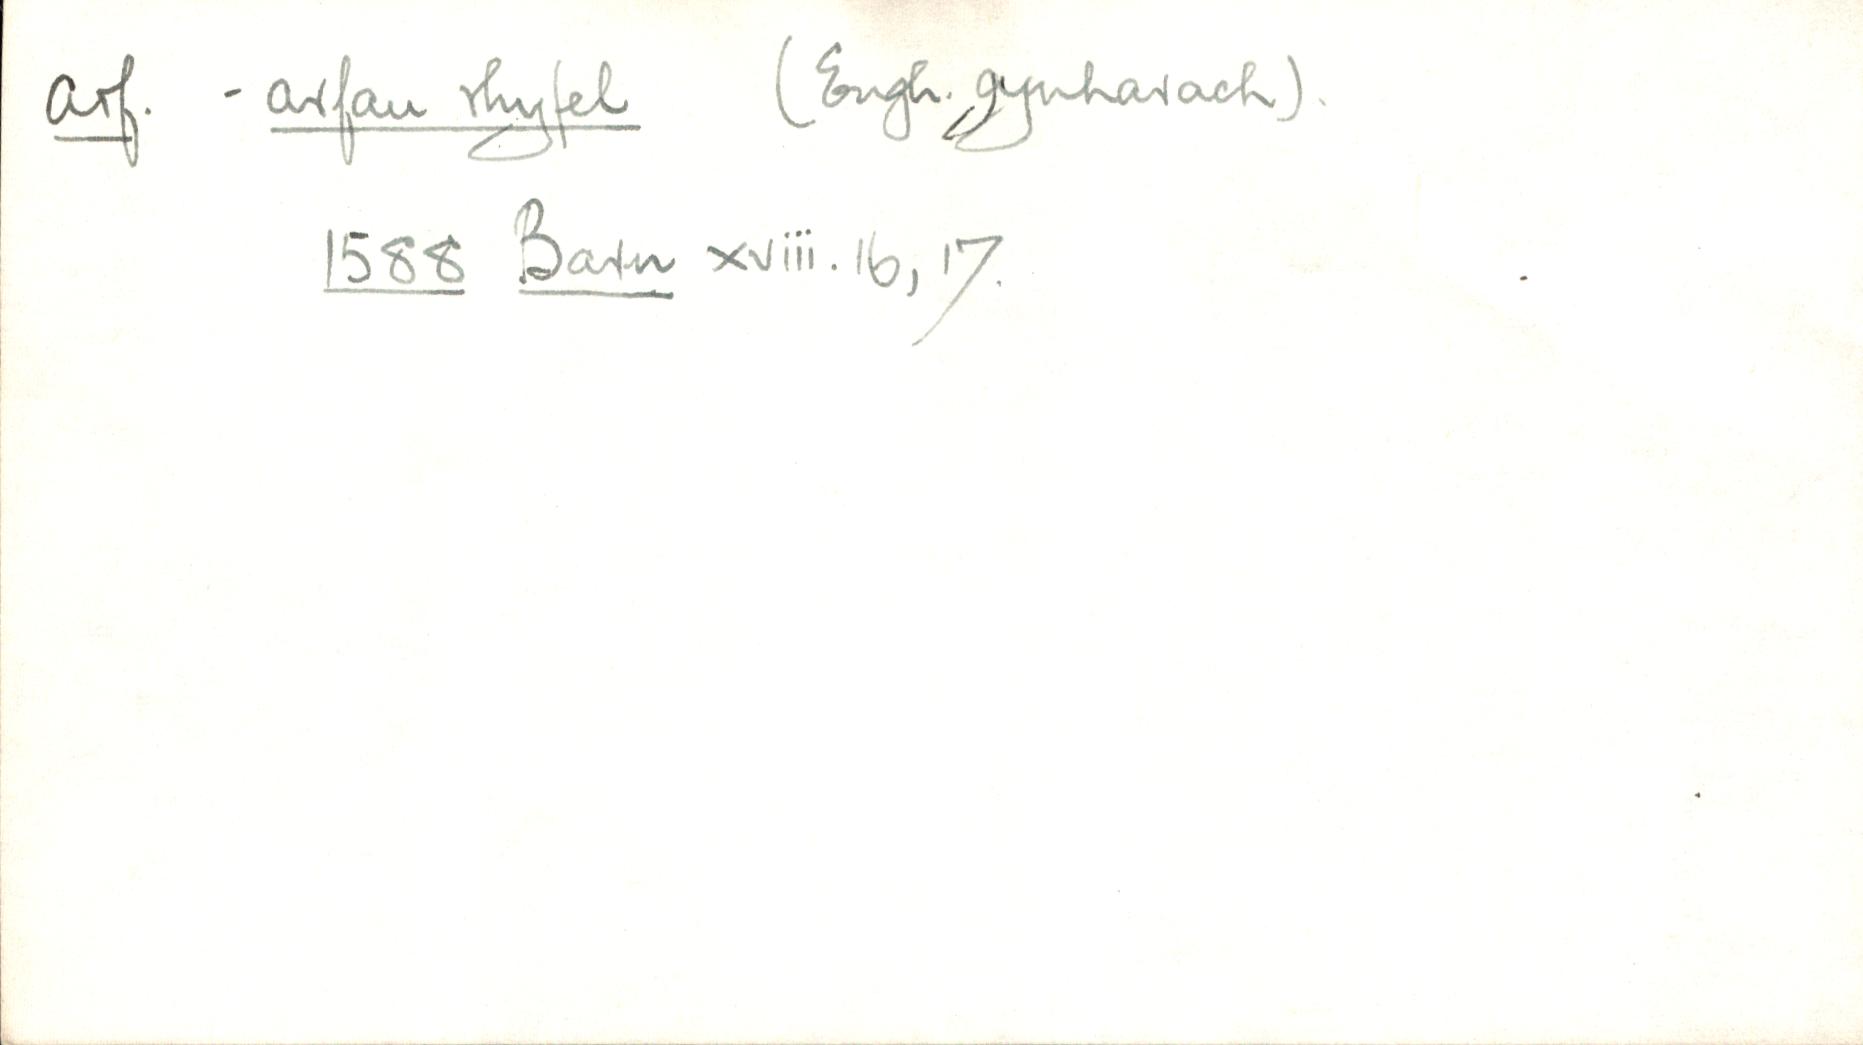 arf. - arfau rhyfel (Engh. gynharach).
1588 Barn xviii. 16, 17.